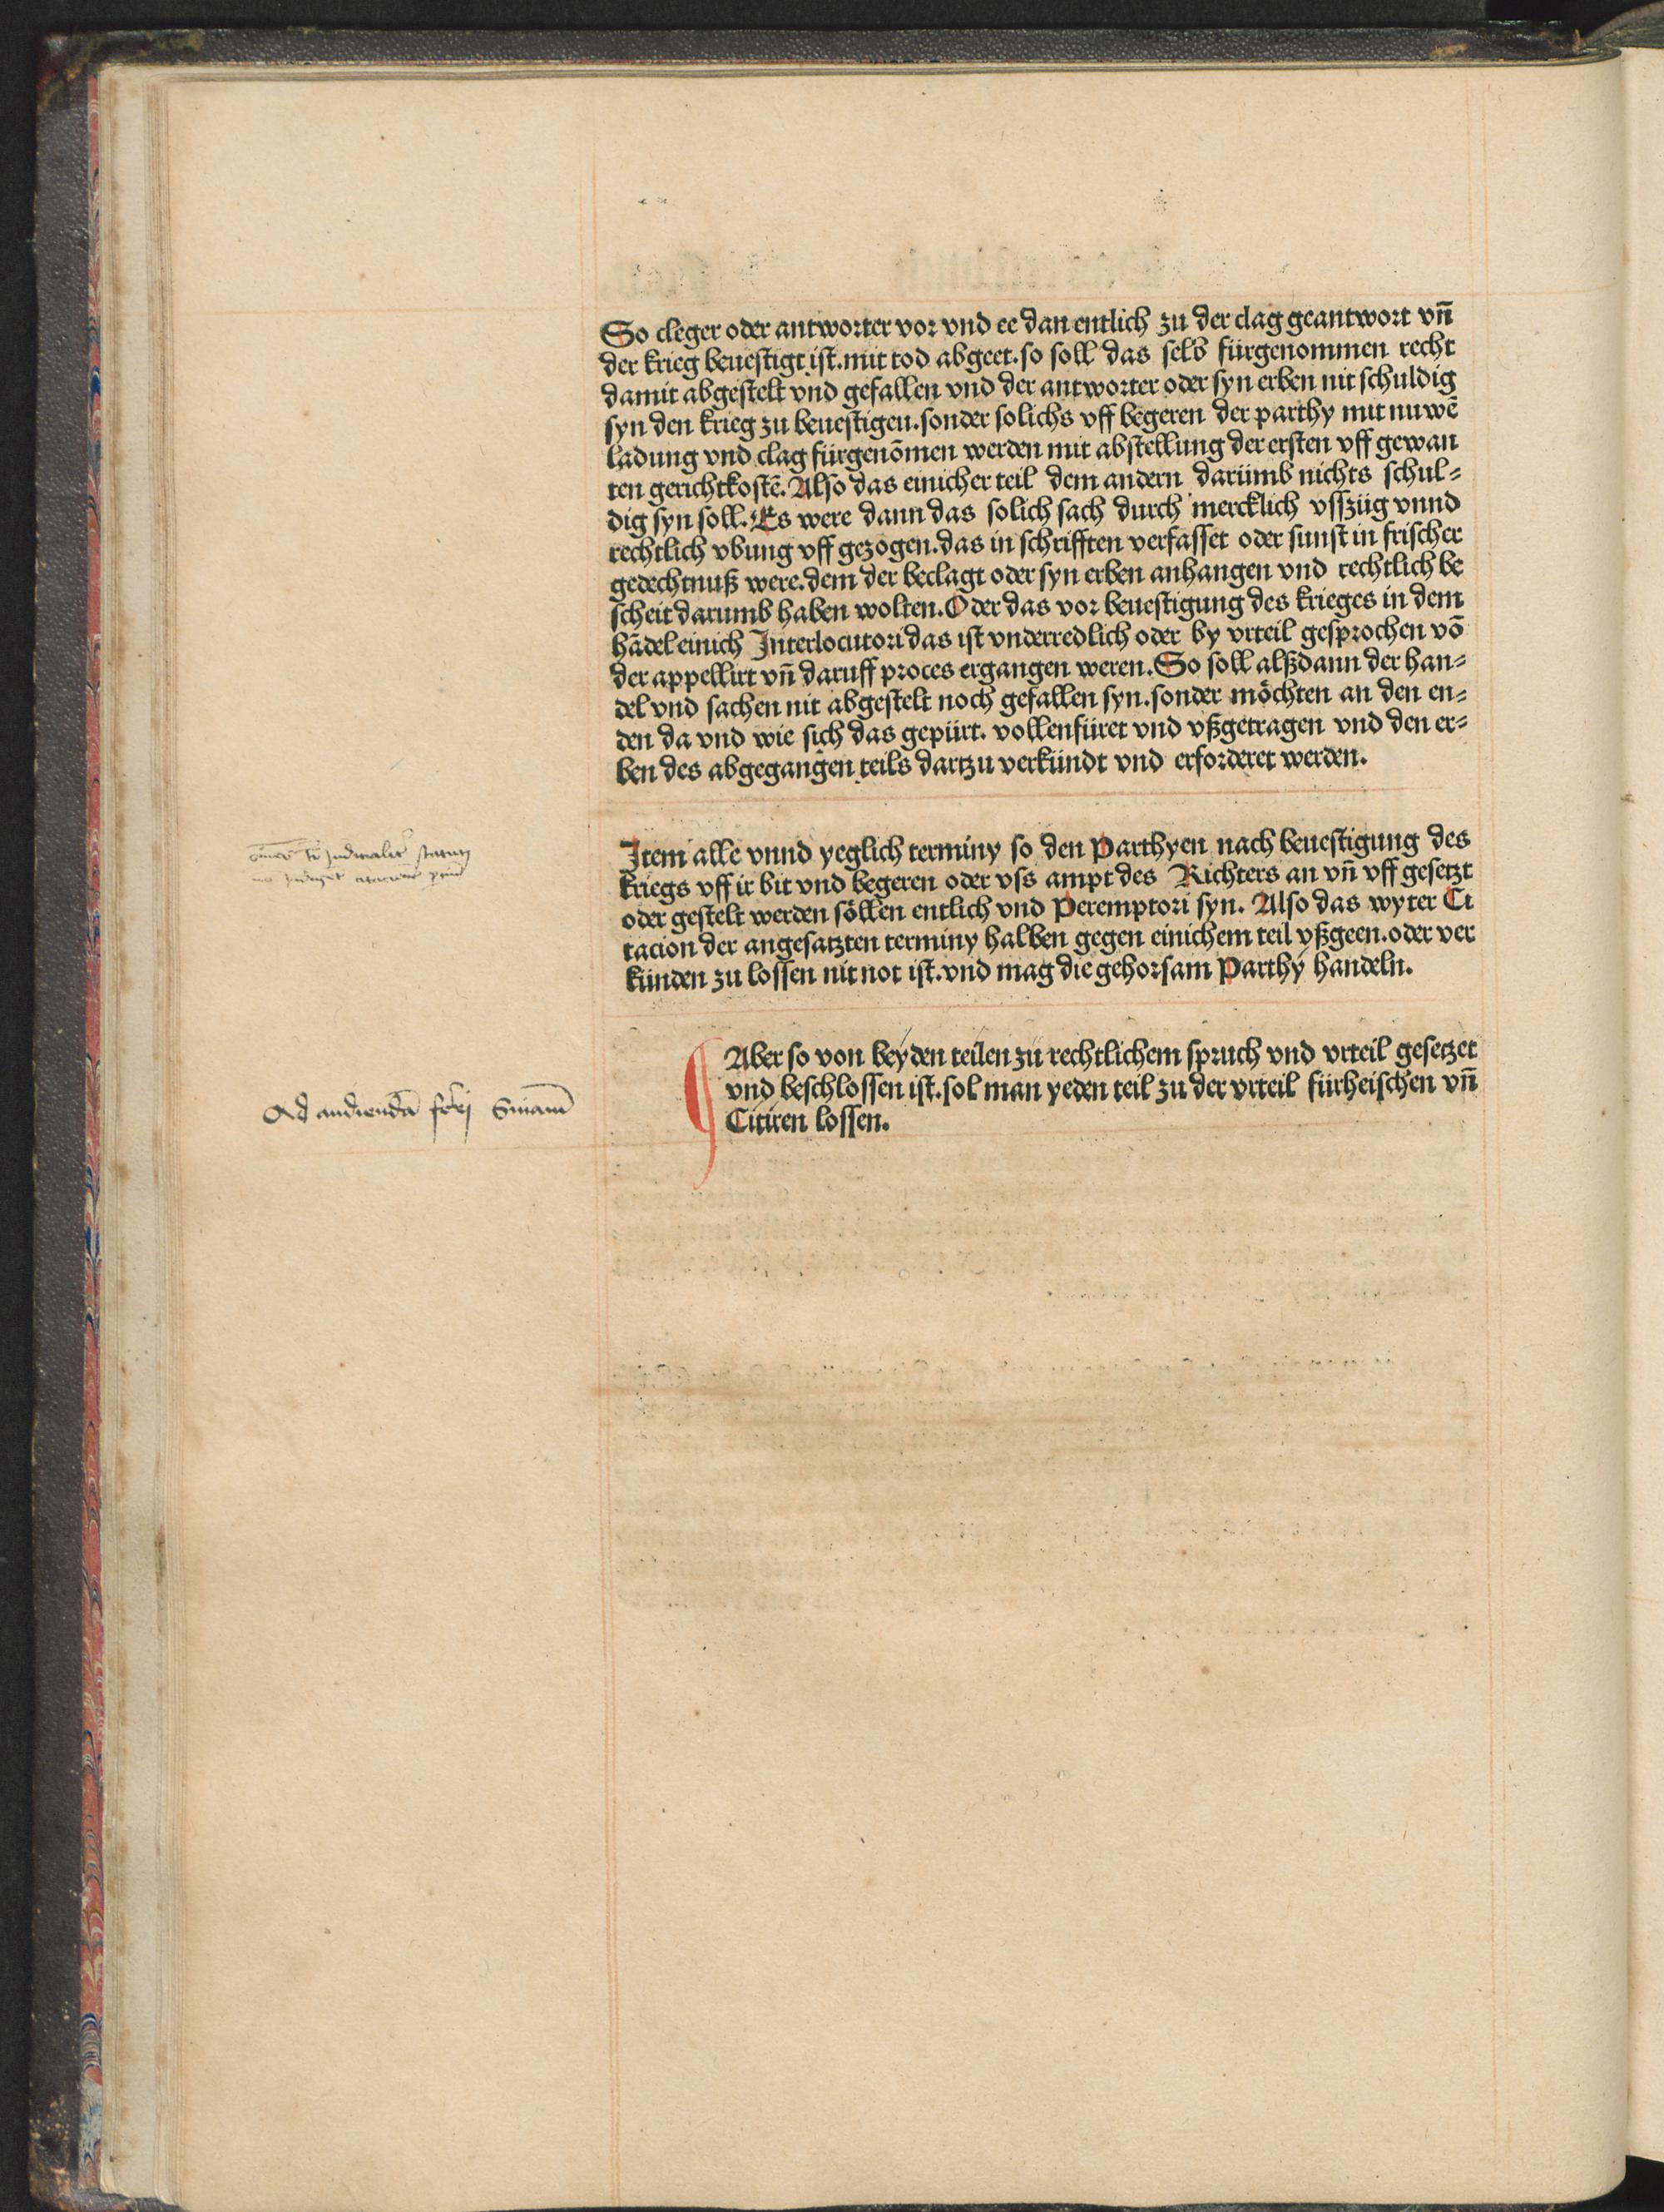 So cleger oder antworter vor vnd ee dan entlich zu der clag geantwort vn̄
der krieg beuestigt ist. mit tod abgeet. so soll das selb fürgenommen recht
damit abgestelt vnd gefallen vnd der antworter oder syn erben nit schuldig
syn den krieg zu beuestigen. sonder solichs vff begeren der parthy mit nuwē
ladung vnd clag fürgenōmen werden mit abstellung der ersten vff gewan
ten gerichtkostē. Also das einicher teil dem andern darümb nichts schul⸗
dig syn soll. Es were dann das solich sach durch mercklich vsszüg vnnd
rechtlich vbung vff gezogen. das in schrifften verfasset oder sunst in frischer
gedechtnuß were. dem der beclagt oder syn erben anhangen vnd rechtlich be
scheit darumb haben wolten. Oder das vor beuestigung des krieges in dem
hādel einich Interlocutori das ist vnderredlich oder by vrteil gesprochen vō
der appellirt vn̄ daruff proces ergangen weren. So soll alßdann der han⸗
del vnd sachen nit abgestelt noch gefallen syn. sonder möchten an den en⸗
den da vnd wie sich das gepürt. vollenfüret vnd vßgetragen vnd den er⸗
ben des abgegangen teils dartzu verkündt vnd erforderet werden.
Item alle vnnd yeglich terminy so den Parthyen nach beuestigung des
kriegs vff ir bit vnd begeren oder vss ampt des Richters an vn̄ vff gesetzt
oder gestelt werden söllen entlich vnd Peremptori syn. Also das wyter Ci
tacion der angesatzten terminy halben gegen einichem teil vßgeen. oder ver
künden zu lossen nit not ist. vnd mag die gehorsam Parthy handeln.
Aber so von beyden teilen zu rechtlichem spruch vnd vrteil gesetzet
vnd beschlossen ist. sol man yeden teil zu der vrteil fürheischen vn̄
Citiren lossen.
Ad audiendā